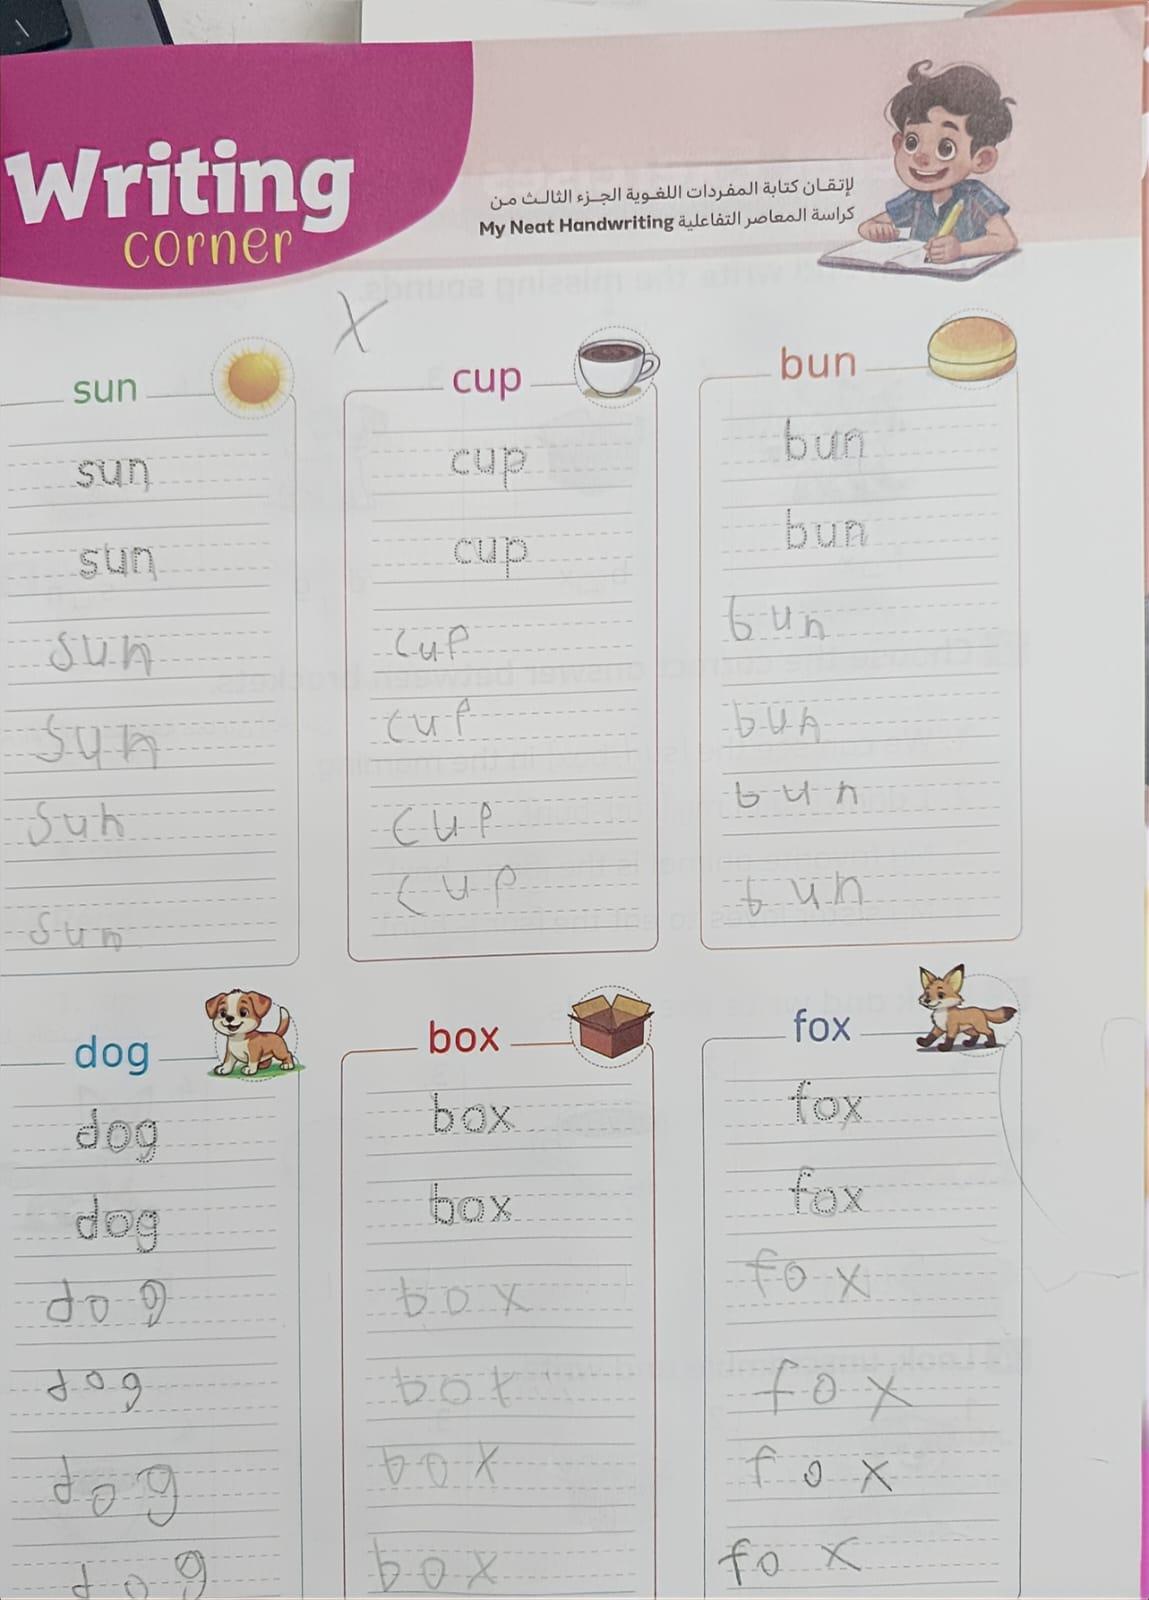 Writing
corner
لإتقان كتابة المفردات اللغوية الجزء الثالث من
كراسة المعاصر التفاعلية My Neat Handwriting
X
sun
sun
sun
sun
sun
sun
sun
cup
cup
cup
cup
cup
cup
cup
bun
bun
bun
bun
bun
bun
bun
dog
dog
dog
dog
dog
dog
dog
box
box
box
box
box
box
box
fox
fox
fox
fox
fox
fox
fox